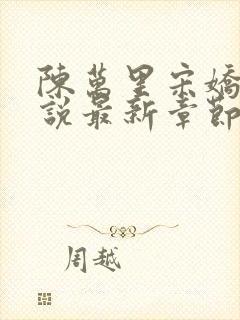 陳萬里宋嬌
說最新章節
周越